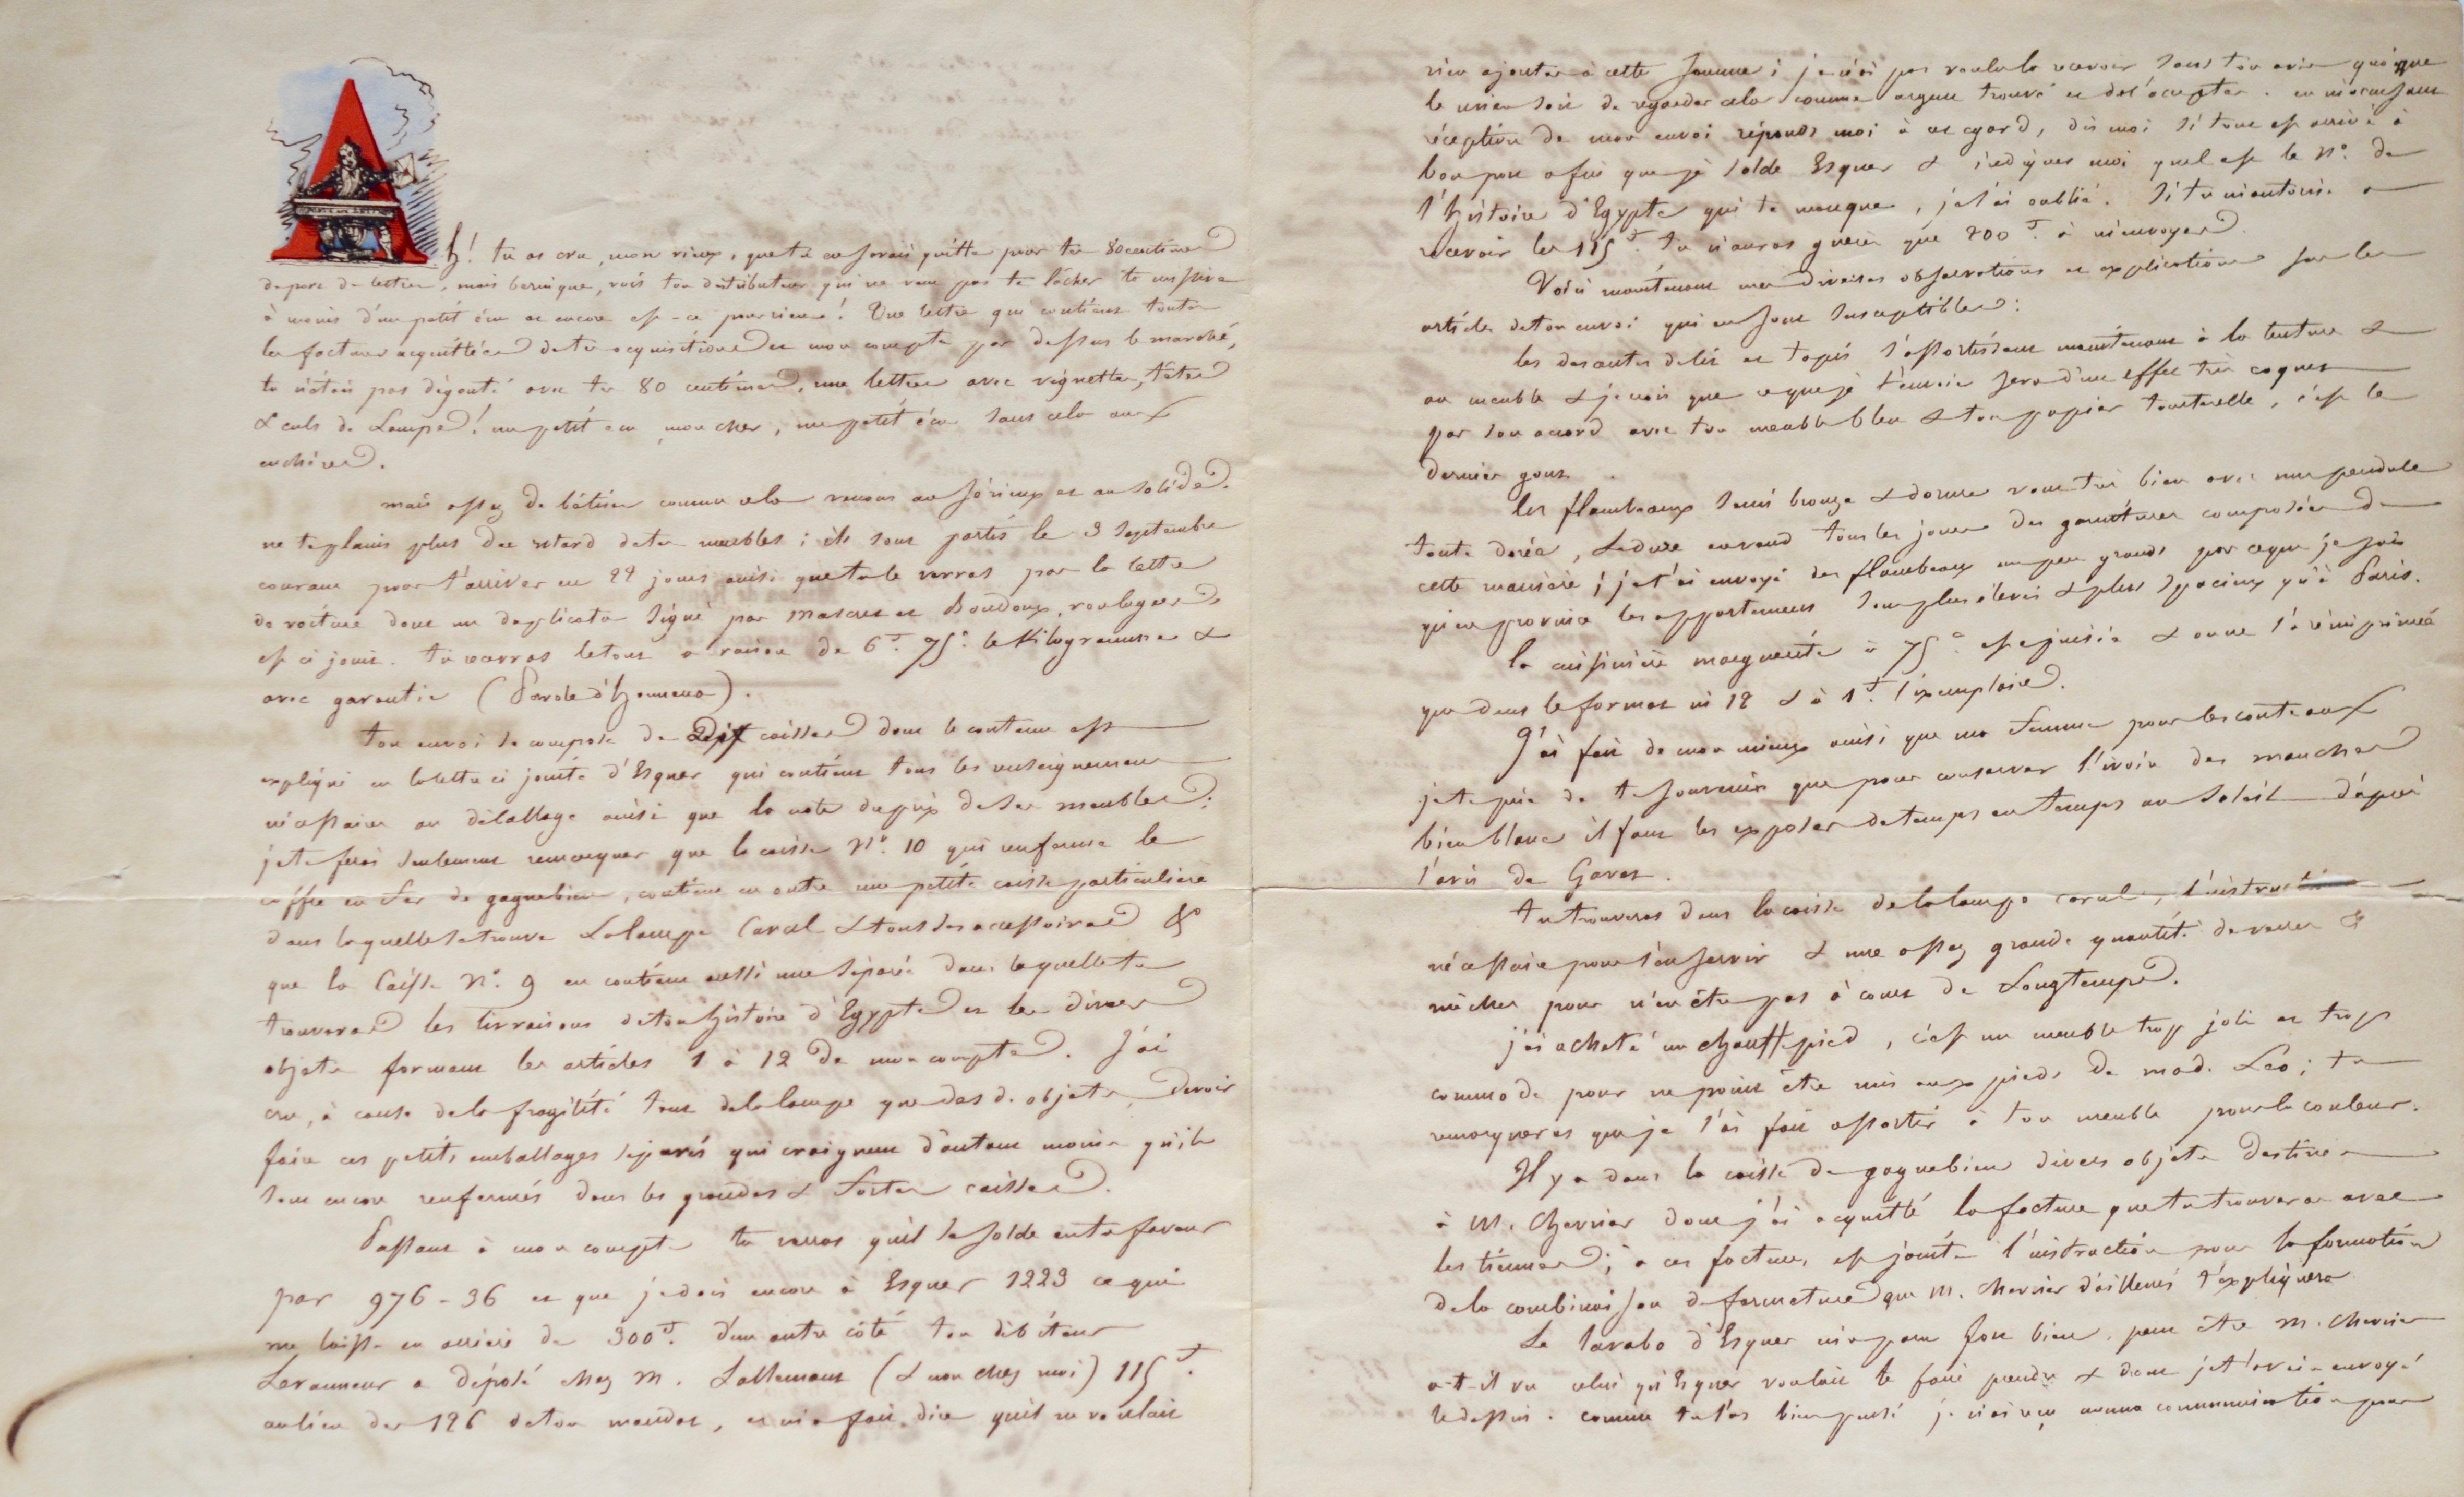 POSTE AUX LETTRES
Ah! tu as cru, mon vieux, que tu en serais quitte pour tes 80 centimes
de port de lettre, mais bernique, vois ton distributeur qui ne veut pas te lâcher ta missive
à moins d'un petit écu et encore est-ce pour rien! Une lettre qui contient toutes
les factures acquittées de tes acquisitions et mon compte par dessus le marché,
tu n'étais pas dégouté avec tes 80 centimes, une lettre avec vignettes, têtes
& culs de Lampe! un petit écu mon cher, un petit écu sans cela aux
enchères.
mais assez de bêtises comme cela venons au sérieux et au solide.
ne te plains plus du retard de tes meubles; ils sont partis le 3 Septembre
courant pour t'arriver en 22 jours ainsi que tu le verras par la lettre
de voiture dont un duplicata signé par et rouliers
est ci joint. tu recevras le tout a raison de 6f. 75c. le Kilogramme &
avec garantie (Parole d'honneur).
ton envoi se compose de Dix caisses dont le contenu est
expliqué en la lettre ci jointe d'Esquer qui contient tous les renseignemens
nécessaires au déballage ainsi que la note du prix de ses meubles.
je te ferai seulement remarquer que la caisse N°. 10 qui renferme le
coffre en fer de gagnebien, contient en outre une petite caisse particulière
dans laquelle se trouve La lampe Carcel & tous ses accessoires &
que la Caisse N°. 9 en contient aussi une séparée dans laquelle tu
trouveras les livraisons de ton histoire d'Egypte et les divers
objets formant les articles 1 à 12 de mon compte. J'ai
cru, à cause de la fragilité tant de la lampe que des d. objets, devoir
faire ces petits emballages séparés qui craignent d'autant moins qu'ils
sont encore renfermés dans les grandes & fortes caisses.
Passant à mon compte tu verras qu'il se solde en ta faveur
par 976-36 et que je dois encore à Esquer 1223 ce qui
me laisse en arrière de 300f. d'un autre côté ton débiteur
Levanneur a déposé chez M. Lallemant (& non chez moi) 115f.
au lieu des 126 de ton mandat, et m'a fait dire qu'il ne voulait
rien ajouter à cette somme; je n'ai pas voulu la recevoir sans ton avis quoique
le mien soit de regarder cela comme argent trouvé et de l'accepter. en m'accusant
réception de mon envoi réponds moi à cet égard, dis moi si tout est arrivé à
bon port afin que je solde Esquer & indiques moi quel est le N°. de
l'histoire d'Egypte qui te manque, je l'ai oublié. Si tu m'autorise a
recevoir les 115f. tu n'auras guère que 200f. à m'envoyer.
Voici maintenant mes diverses observations et explications sur les
articles de ton envoi qui en sont susceptibles:
les descentes de lit et tapis s'assortissent maintenant à la tenture &
au meuble & je crois que ce que je t'envoie sera d'un effet très coquet
par son accord avec ton meuble bleu & ton papier tourterelle, c'est le
dernier gout.
les flambeaux semi bronze & dorure vont très bien avec une pendule
toute dorée, Leduse en vend tous les jours des garnitures composées de
cette manière; je t'ai envoyé des flambeaux un peu grands par ce que je sais
qu'en province les appartemens sont plus élevés & plus spacieux qu'à Paris.
la cuisinière marguerite à 75c. est épuisée & on ne l'a réimprimée
que dans le format in 12 & à 1f. l'exemplaire.
J'ai fait de mon mieux ainsi que ma femme pour les couteaux
je te prie de te souvenir que pour conserver l'ivoire des manches
bien blanc il faut les exposer de temps en temps au soleil d'après
l'avis de Gavet.
tu trouveras dans la caisse de la lampe carcel, l'instruction
nécessaire pour s'en servir & une assez grande quantité de verres &
mèches pour n'en être pas à court de Longtemps.
j'ai acheté un chauffepied, c'est un meuble trop joli et trop
commode pour ne point être mis aux pieds de mad. Léo; tu
remarqueras que je l'ai fait assortir à ton meuble pour la couleur.
Il y a dans la caisse de gagnebien divers objets destinés
à M. Chervier dont j'ai acquitté la facture que tu trouveras avec
les tiennes; à ces factures est jointe l'instruction pour la formation
de la combinaison de fermeture que M. Chervier d'ailleurs t'expliquera.
Le lavabo d'Esquer m'a paru fort bien, peut être M. Chervier
a-t-il vu celui qu'Esquer voulait te faire prendre & dont je t'avais envoyé
le dessin. comme tu l'as bien pensé je n'ai reçu aucune communication pour